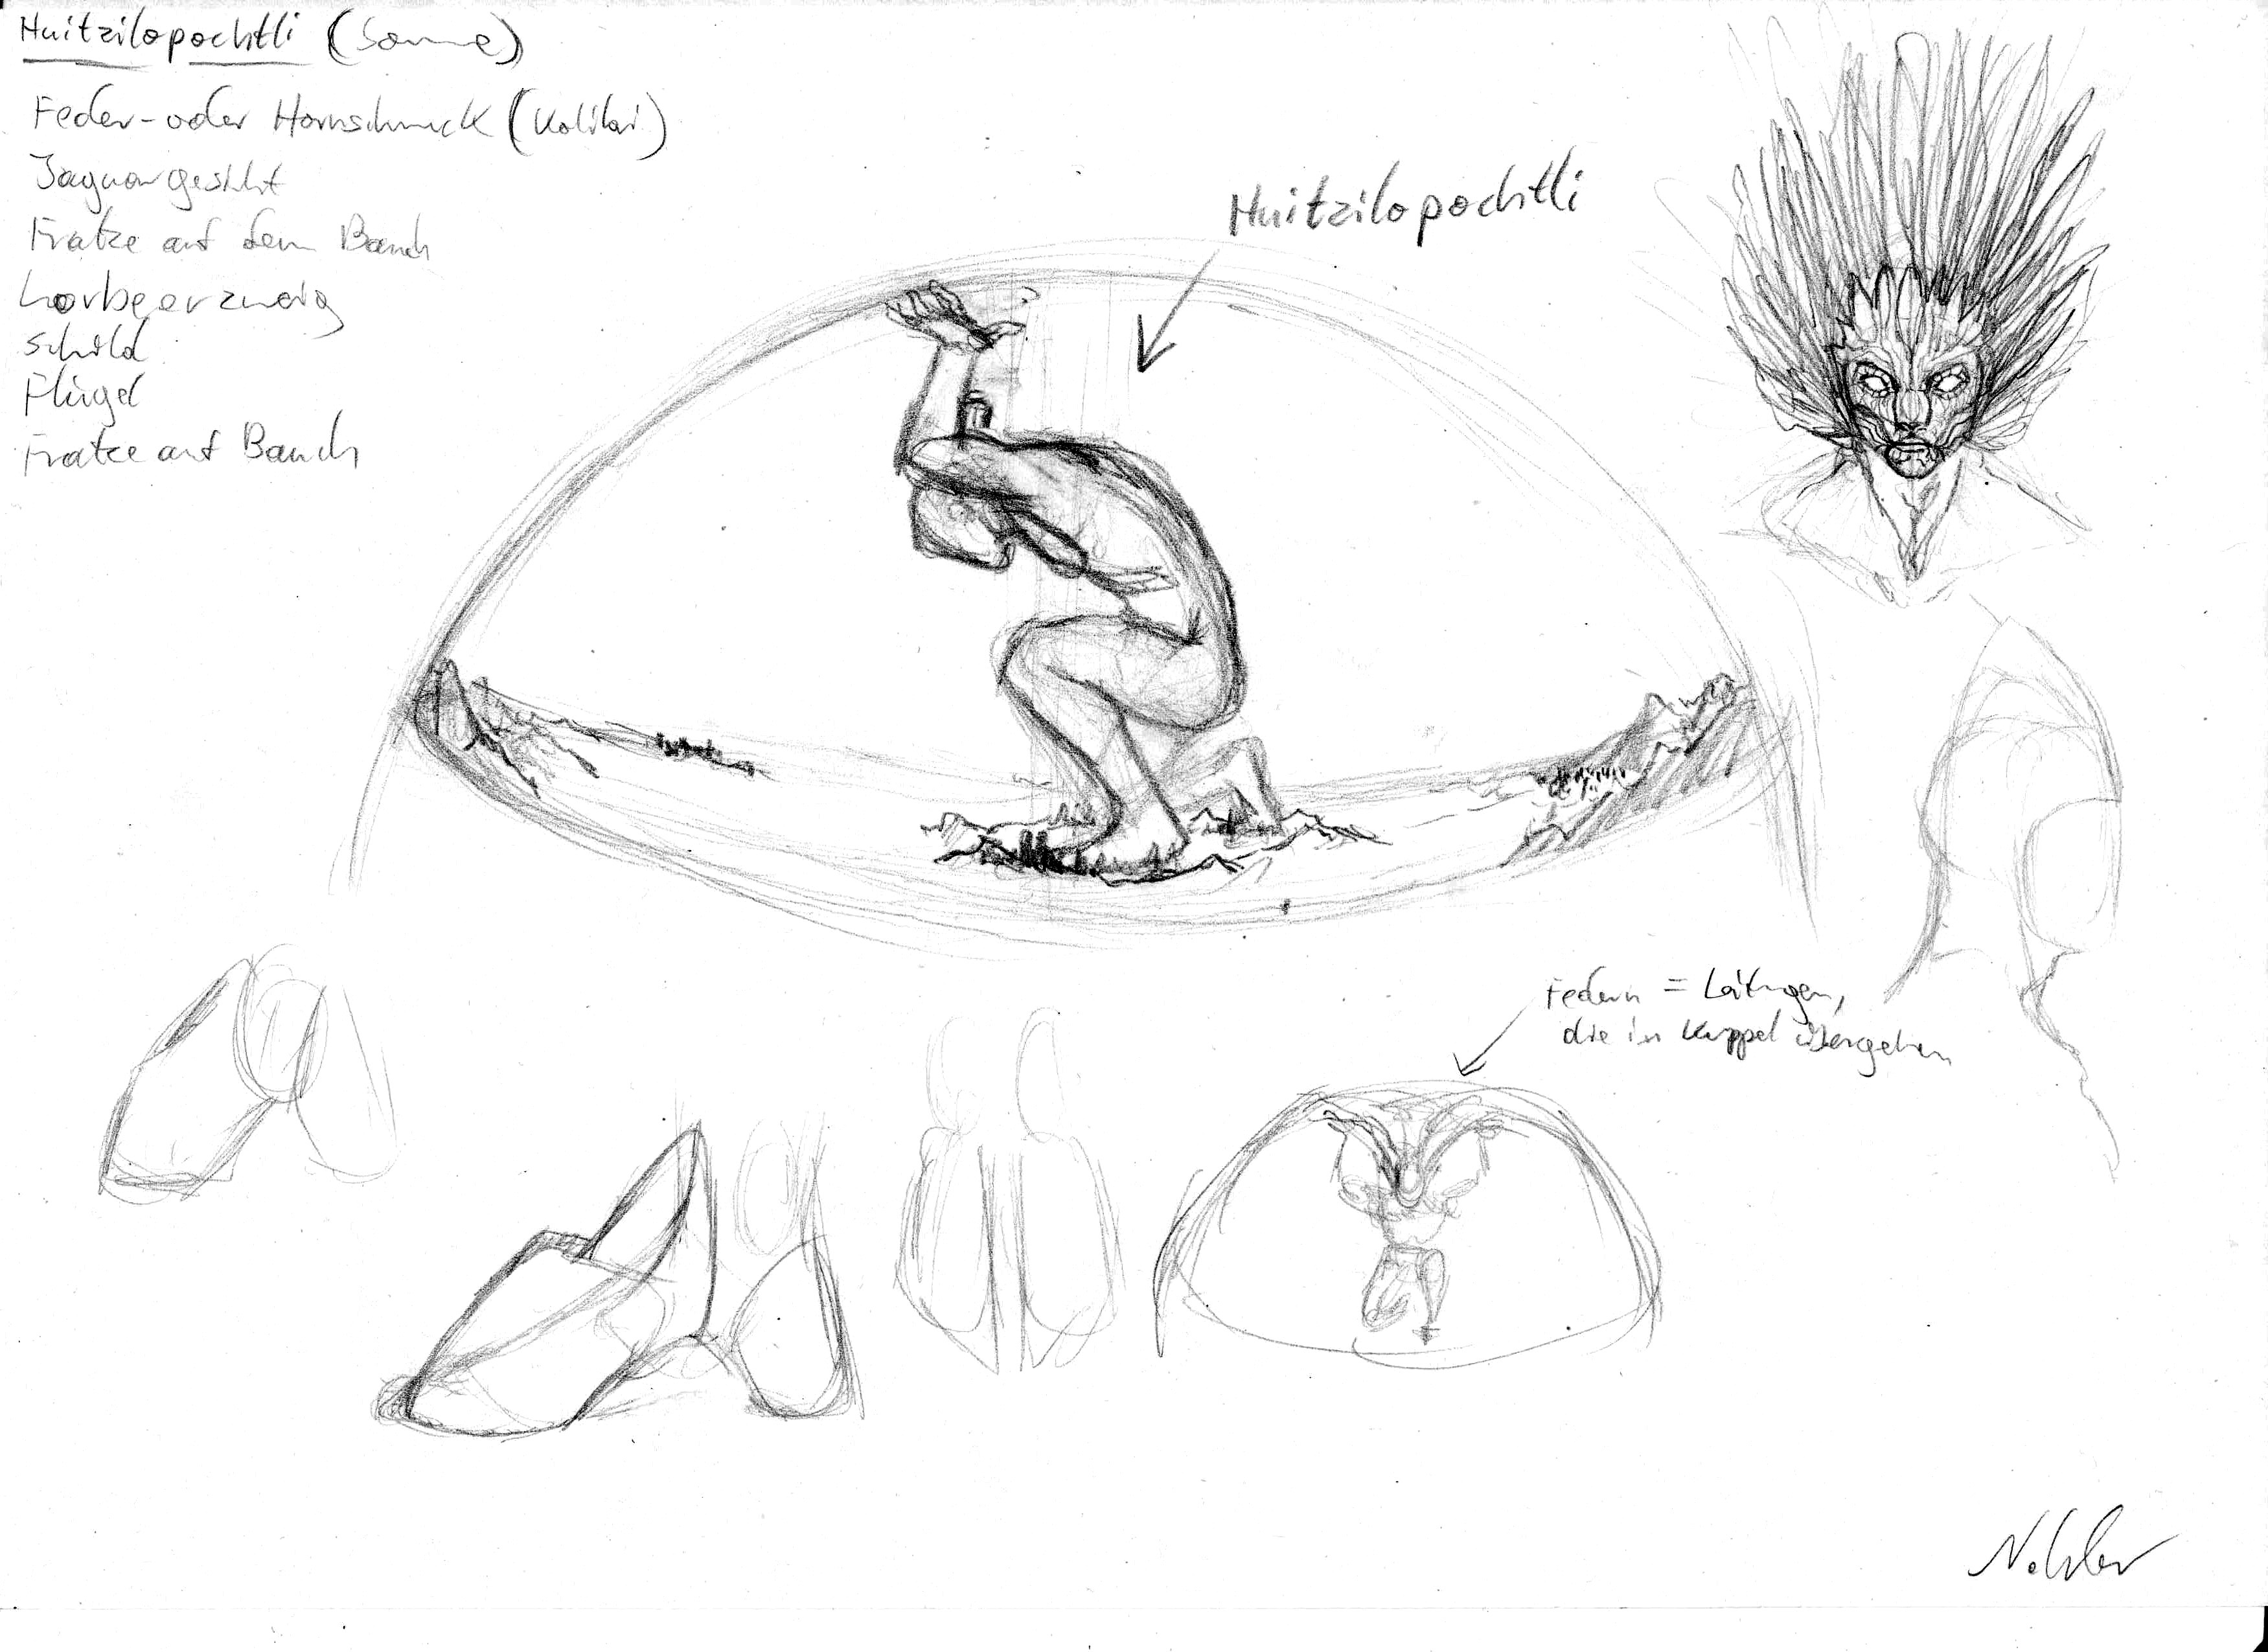 Huitzilopochtli (Sonne)
Feder-oder Hornschmuck (Kolibri)
Jaguargesicht
Fratze auf dem Bauch
Lorbeerzweig
Schild
Flügel
Fratze auf Bauch
Huitzilopochtli
Federn = Leitungen,
die in Kuppel übergehen